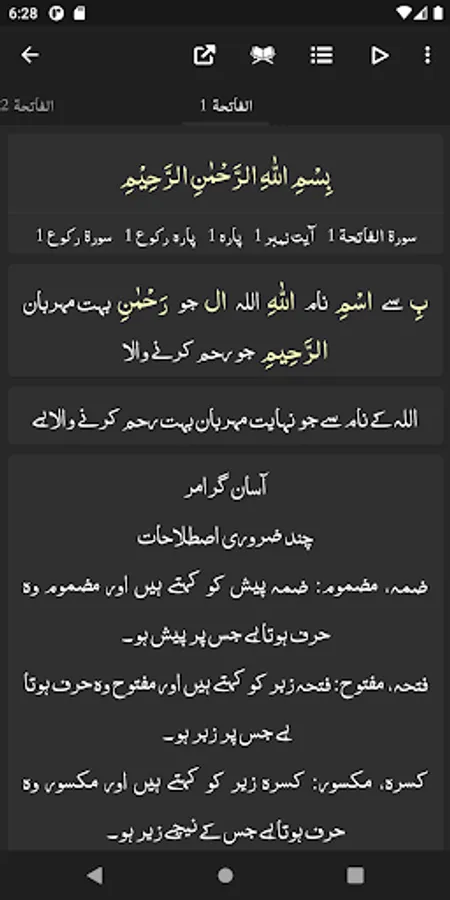 6:28
الفاتحة 1
الفاتحة 2
بِسْمِ اللّٰهِ الرَّحْمٰنِ الرَّحِيْمِ
سورۃ الفاتحة 1 آیت نمبر 1 پارہ 1 پارہ رکوع 1 سورۃ رکوع 1
بِ سے اسْمِ نام اللّٰهِ اللہ ال جو رَحْمٰنِ بہت مہربان
الرَّحِيمِ جو رحم کرنے والا
اللہ کے نام سے جو نہایت مہربان بہت رحم کرنے والا ہے
آسان گرامر
چند ضروری اصطلاحات
ضمہ، مضموم: ضمہ پیش کو کہتے ہیں اور مضموم وہ
حرف ہوتا ہے جس پر پیش ہو۔
فتحہ، مفتوح: فتحہ زبر کو کہتے ہیں اور مفتوح وہ حرف ہوتا
ہے جس پر زبر ہو۔
کسرہ، مکسور: کسرہ زیر کو کہتے ہیں اور مکسور وہ
حرف ہوتا ہے جس کے نیچے زیر ہو۔